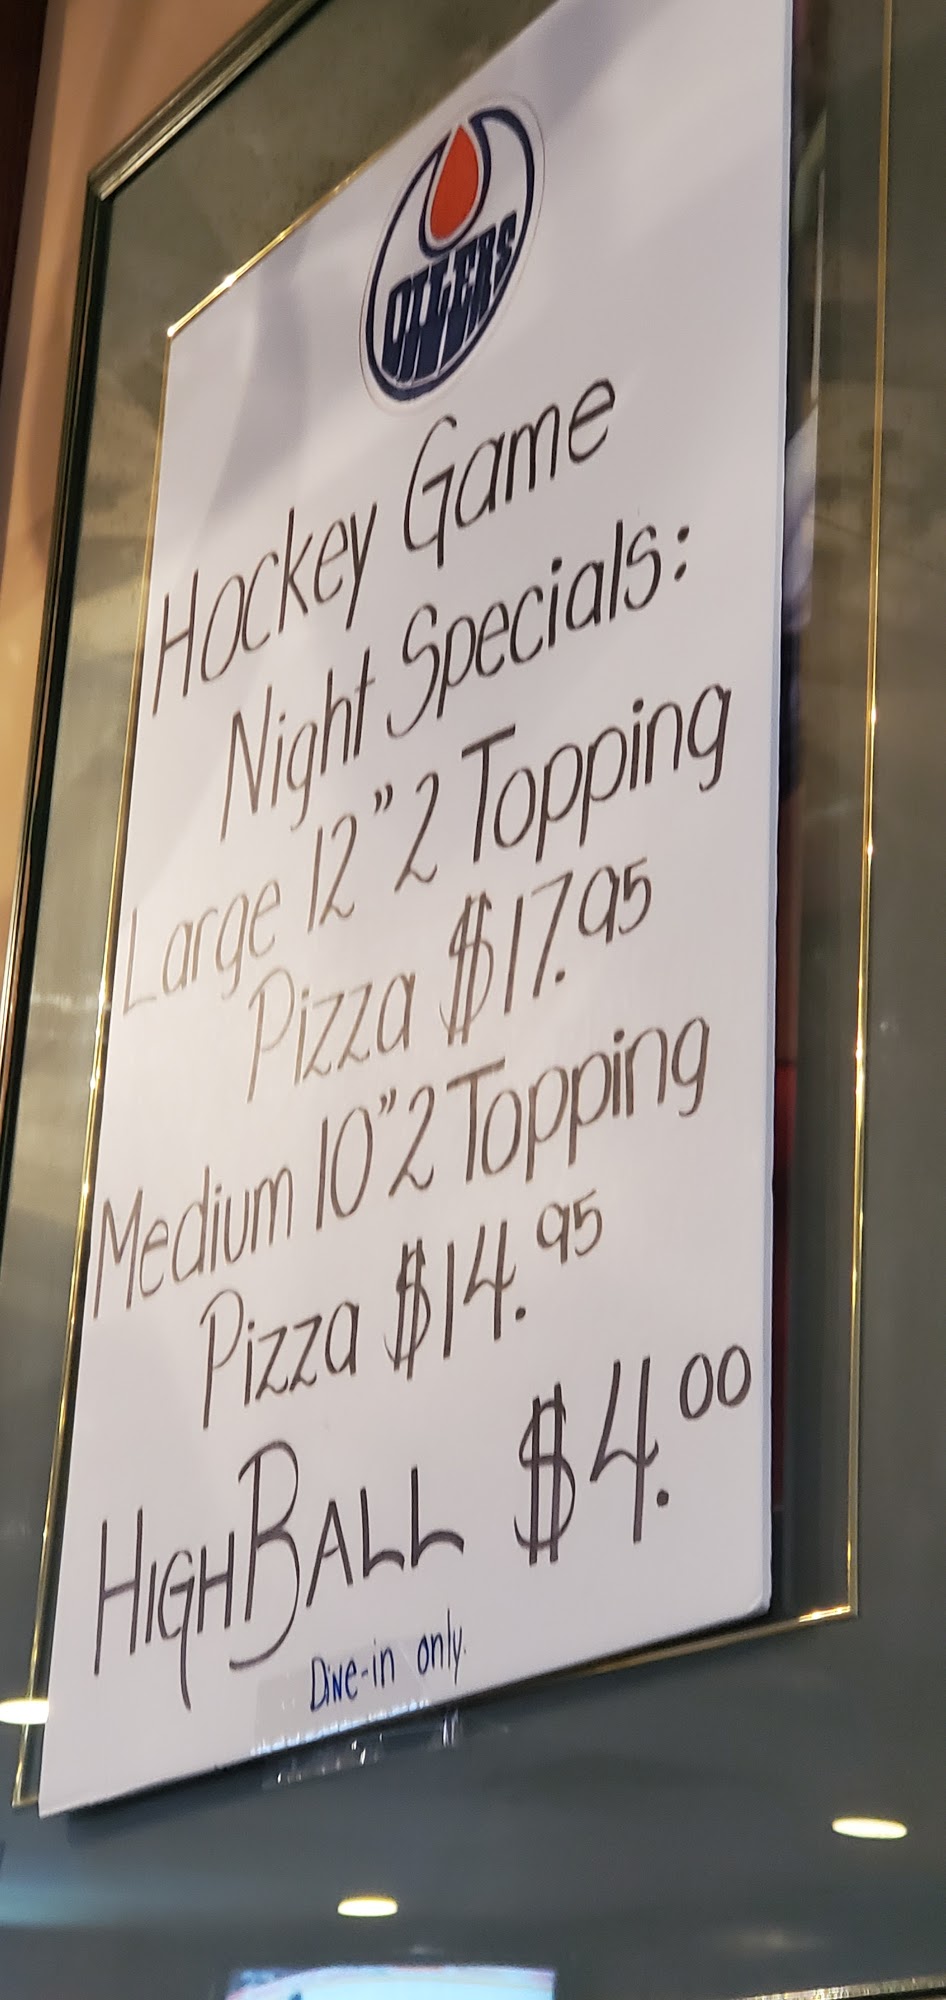 OILERS
Hockey Game
Night Specials:
Large 12" 2 Topping
Pizza $17.95
Medium 10" 2 Topping
Pizza $14.95
HIGHBALL $4.00
Dine-in only.